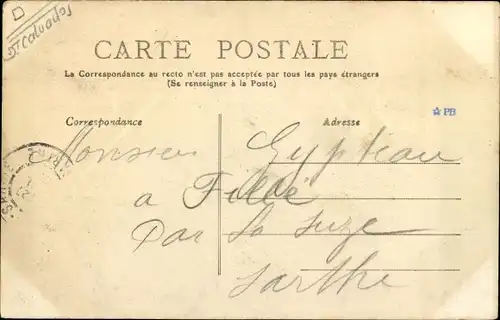 D
Dt Calvados
CARTE POSTALE
La Correspondance au recto n'est pas acceptée par tous les pays étrangers
(Se renseigner à la Poste)
Correspondance
Adresse
☆PB
Monsieur Gyptien
a Fillé
Par La Suze
Sarthe